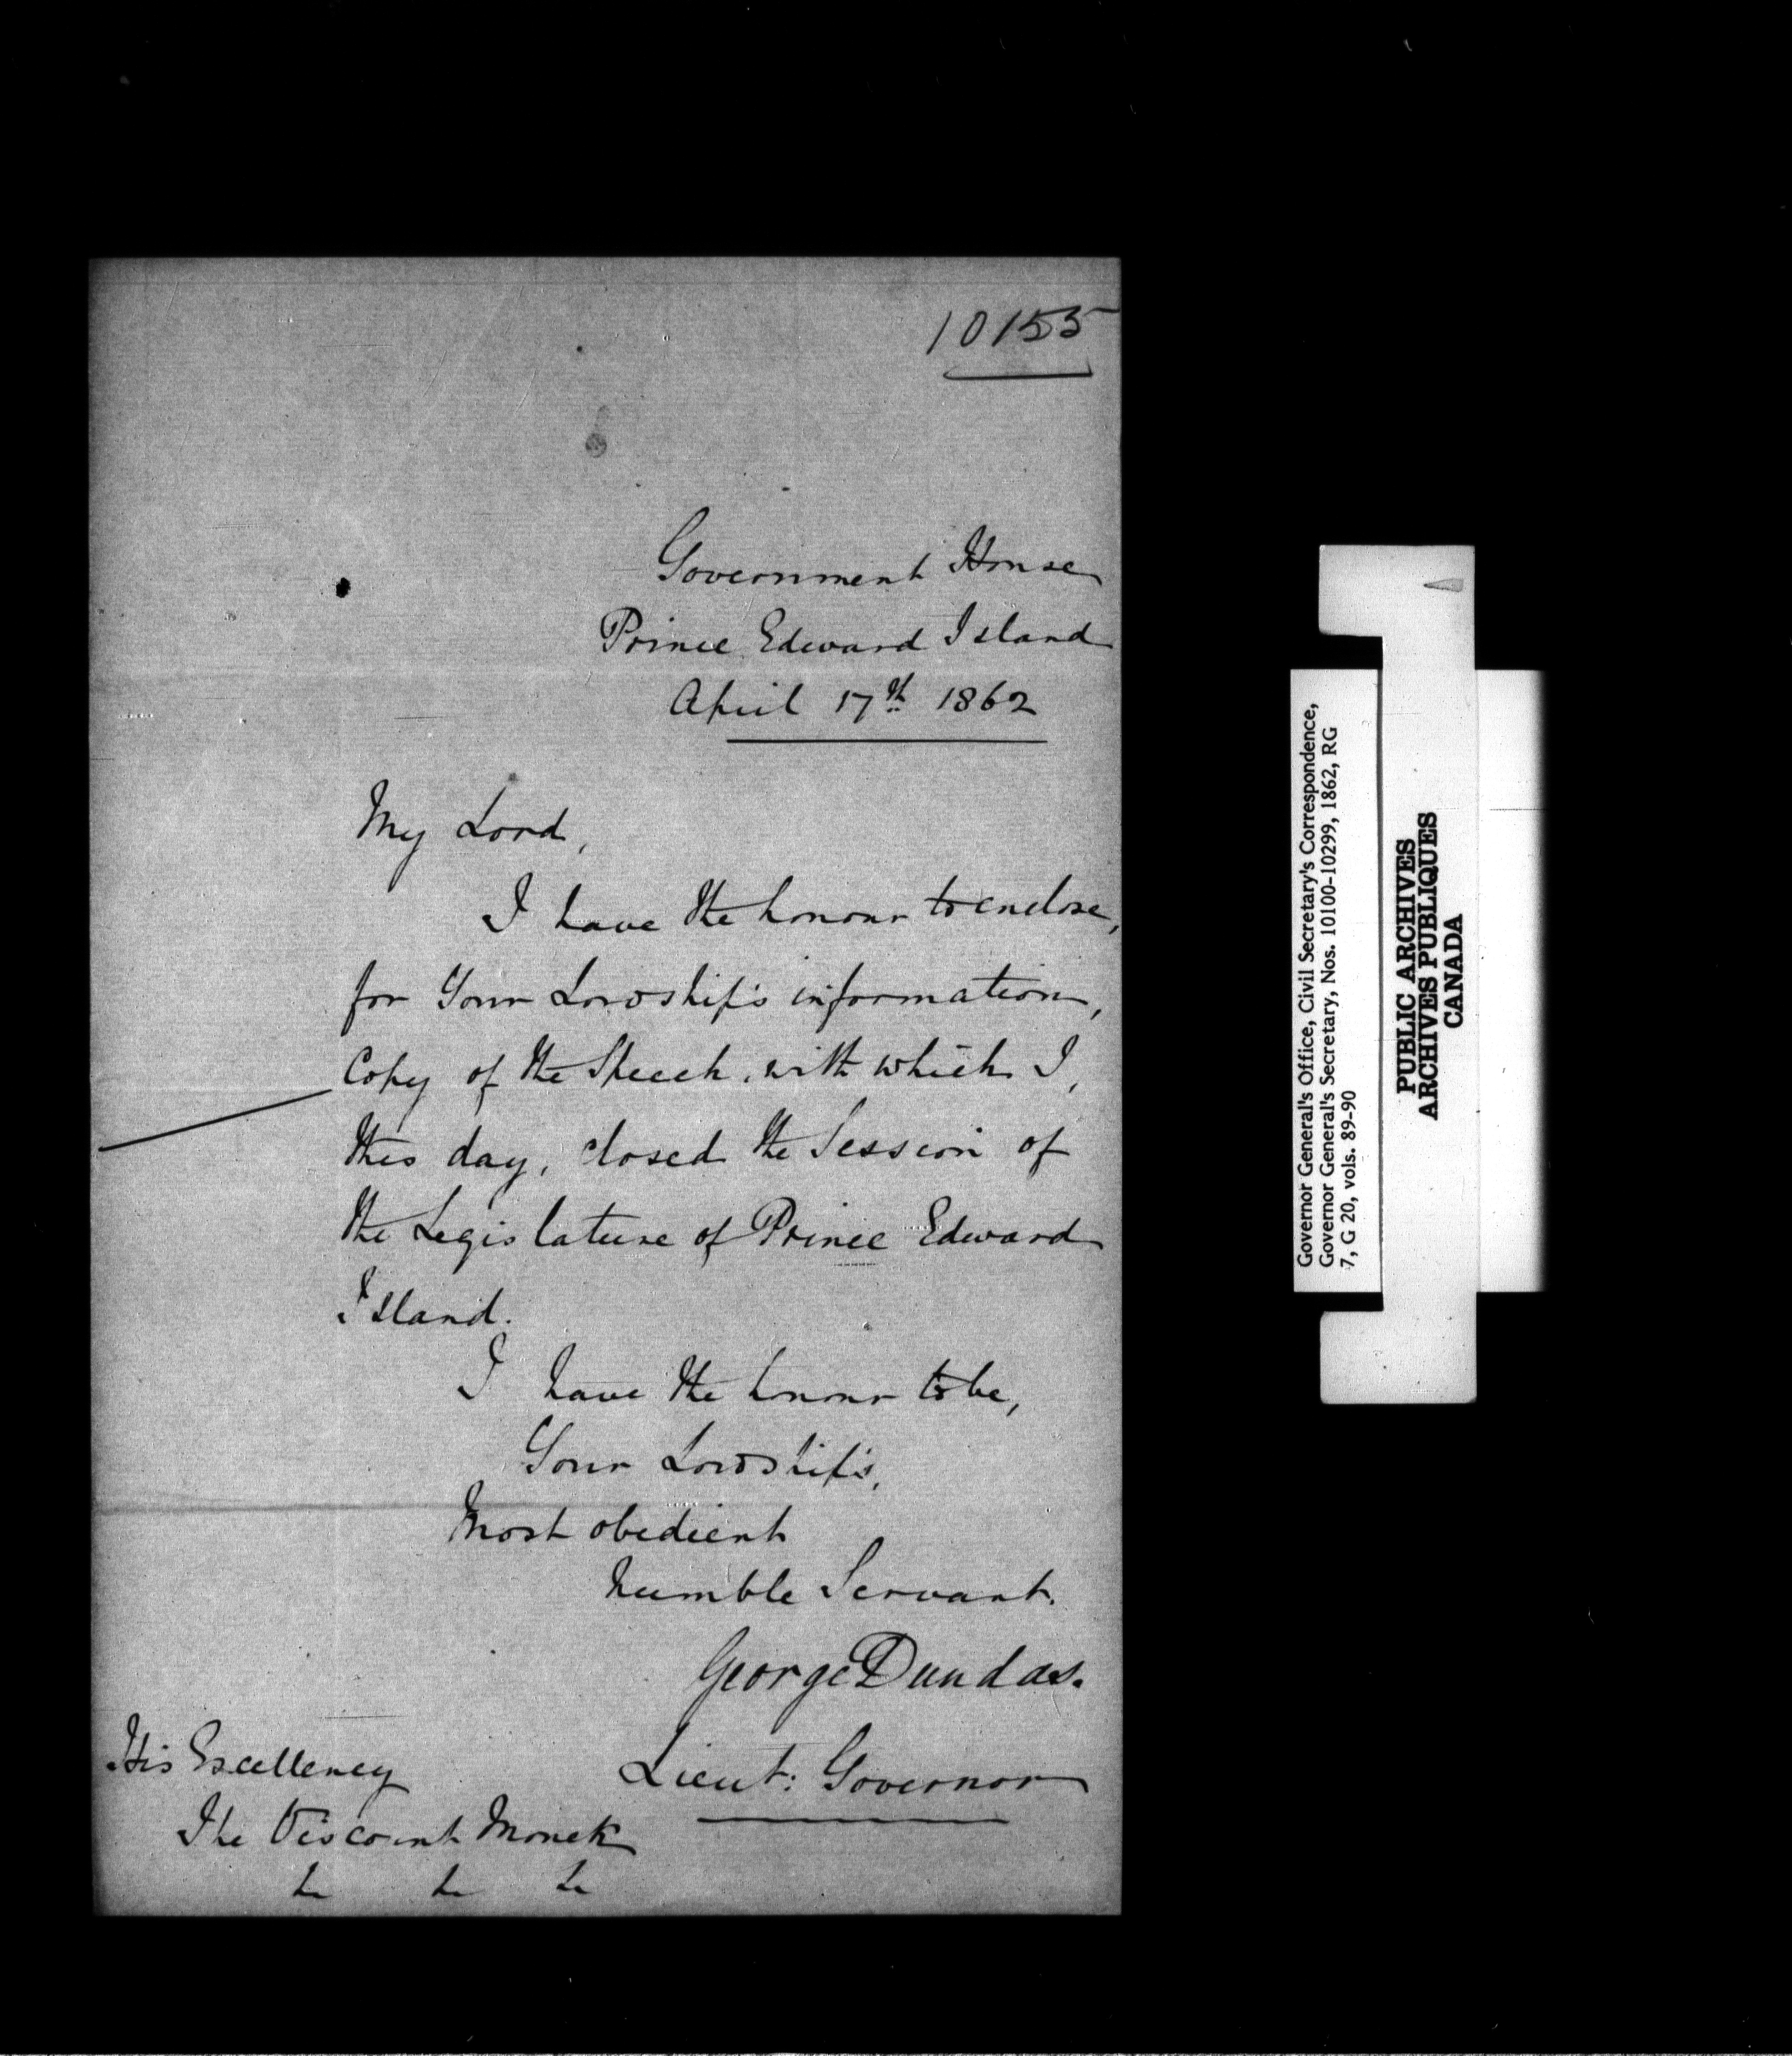 10155
Government House
Prince Edward Island
April 17th 1862
My Lord,
I have the honour to enclose,
for Your Lordship's information,
Copy of the Speech, with which I,
this day, closed the Session of
the Legislature of Prince Edward
Island.
I have the honour to be,
Your Lordship's,
Most obedient
humble Servant.
George Dundas.
Lieut: Governor
His Excellency
The Viscount Monck
&c &c &c
Governor General's Office, Civil Secretary's Correspondence,
Governor General's Secretary, Nos. 10100-10299, 1862, RG
7, G 20, vols. 89-90
PUBLIC ARCHIVES
ARCHIVES PUBLIQUES
CANADA